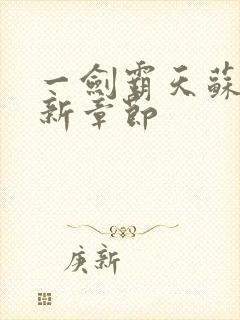 一劍霸天蘇
新章節
庚新